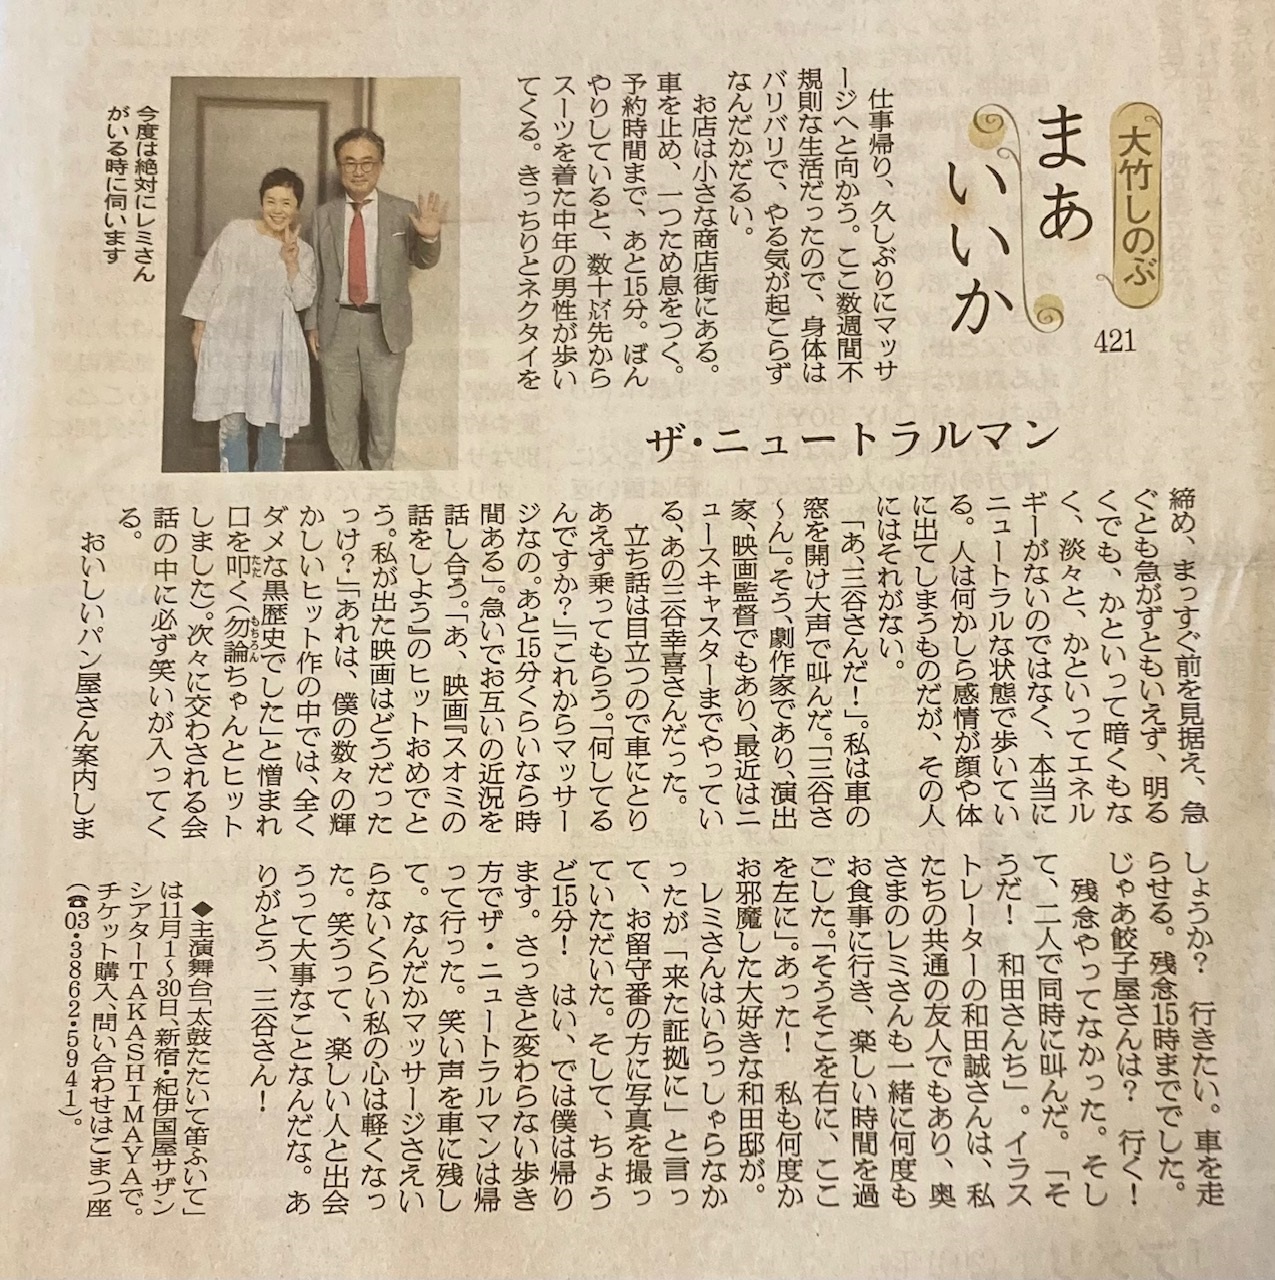 大竹しのぶ
まあ
いいか
421
ザ・ニュートラルマン
仕事帰り、久しぶりにマッサ
ージへと向かう。ここ数週間不
規則な生活だったので、身体は
バリバリで、やる気が起こらず
なんだかだるい。
お店は小さな商店街にある。
車を止め、一つため息をつく。
予約時間まで、あと15分。ぼん
やりしていると、数十㍍先から
スーツを着た中年の男性が歩い
てくる。きっちりとネクタイを
今度は絶対にレミさん
がいる時に伺います
締め、まっすぐ前を見据え、急
ぐとも急がずともいえず、明る
くでも、かといって暗くもな
く、淡々と、かといってエネル
ギーがないのではなく、本当に
ニュートラルな状態で歩いてい
る。人は何かしら感情が顔や体
に出てしまうものだが、その人
にはそれがない。
「あ、三谷さんだ！」。私は車の
窓を開け大声で叫んだ。「三谷さ
〜ん」。そう、劇作家であり、演出
家、映画監督でもあり、最近はニ
ュースキャスターまでやってい
る、あの三谷幸喜さんだった。
立ち話は目立つので車にとり
あえず乗ってもらう。「何してる
んですか？」「これからマッサー
ジなの。あと15分くらいなら時
間ある」。急いでお互いの近況を
話し合う。「あ、映画『スオミの
話をしよう』のヒットおめでと
う。私が出た映画はどうだった
っけ？」「あれは、僕の数々の輝
かしいヒット作の中では、全く
ダメな黒歴史でした」と憎まれ
口を叩く（勿論ちゃんとヒット
しました）。次々に交わされる会
話の中に必ず笑いが入ってく
る。
おいしいパン屋さん案内しま
しょうか？　行きたい。車を走
らせる。残念15時まででした。
じゃあ餃子屋さんは？　行く！
残念やってなかった。そし
て、二人で同時に叫んだ。「そ
うだ！　和田さんち」。イラス
トレーターの和田誠さんは、私
たちの共通の友人でもあり、奥
さまのレミさんも一緒に何度も
お食事に行き、楽しい時間を過
ごした。「そうそこを右に、ここ
を左に」。あった！　私も何度か
お邪魔した大好きな和田邸が。
レミさんはいらっしゃらなか
ったが「来た証拠に」と言っ
て、お留守番の方に写真を撮っ
ていただいた。そして、ちょう
ど15分！　はい、では僕は帰り
ます。さっきと変わらない歩き
方でザ・ニュートラルマンは帰
って行った。笑い声を車に残し
て。なんだかマッサージさえい
らないくらい私の心は軽くなっ
た。笑うって、楽しい人と出会
うって大事なことなんだな。あ
りがとう、三谷さん！
◆主演舞台「太鼓たたいて笛ふいて」
は11月1〜30日、新宿・紀伊国屋サザン
シアターTAKASHIMAYAで。
チケット購入、問い合わせはこまつ座
（☎03・3862・5941）。